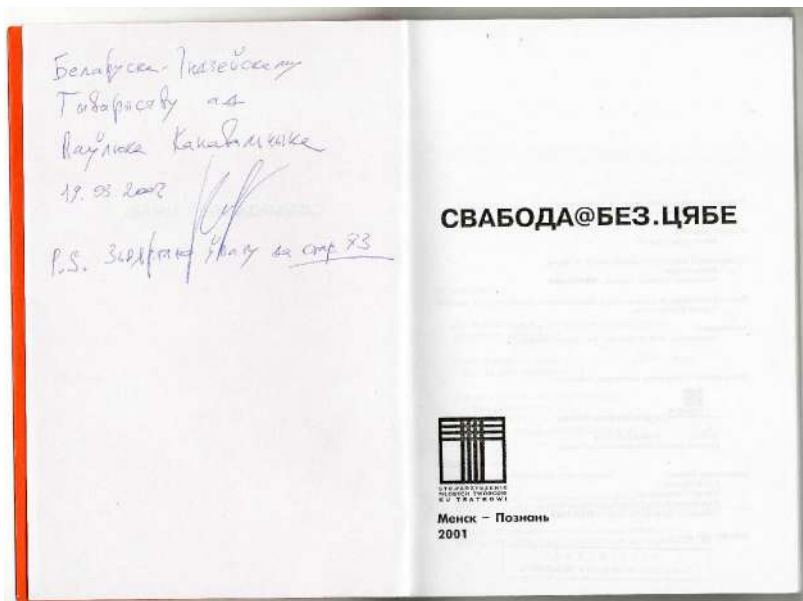 Беларуска-Індзейскаму
Таварыству ад
Паўлюка Канавальчыка
19.03.2002
P.S. Звяртаю ўвагу на стар 93
СВАБОДА@БЕЗ.ЦЯБЕ
STOWARZYSZENIE
MŁODYCH TWÓRCÓW
KU TRATKOWI
Менск – Познань
2001